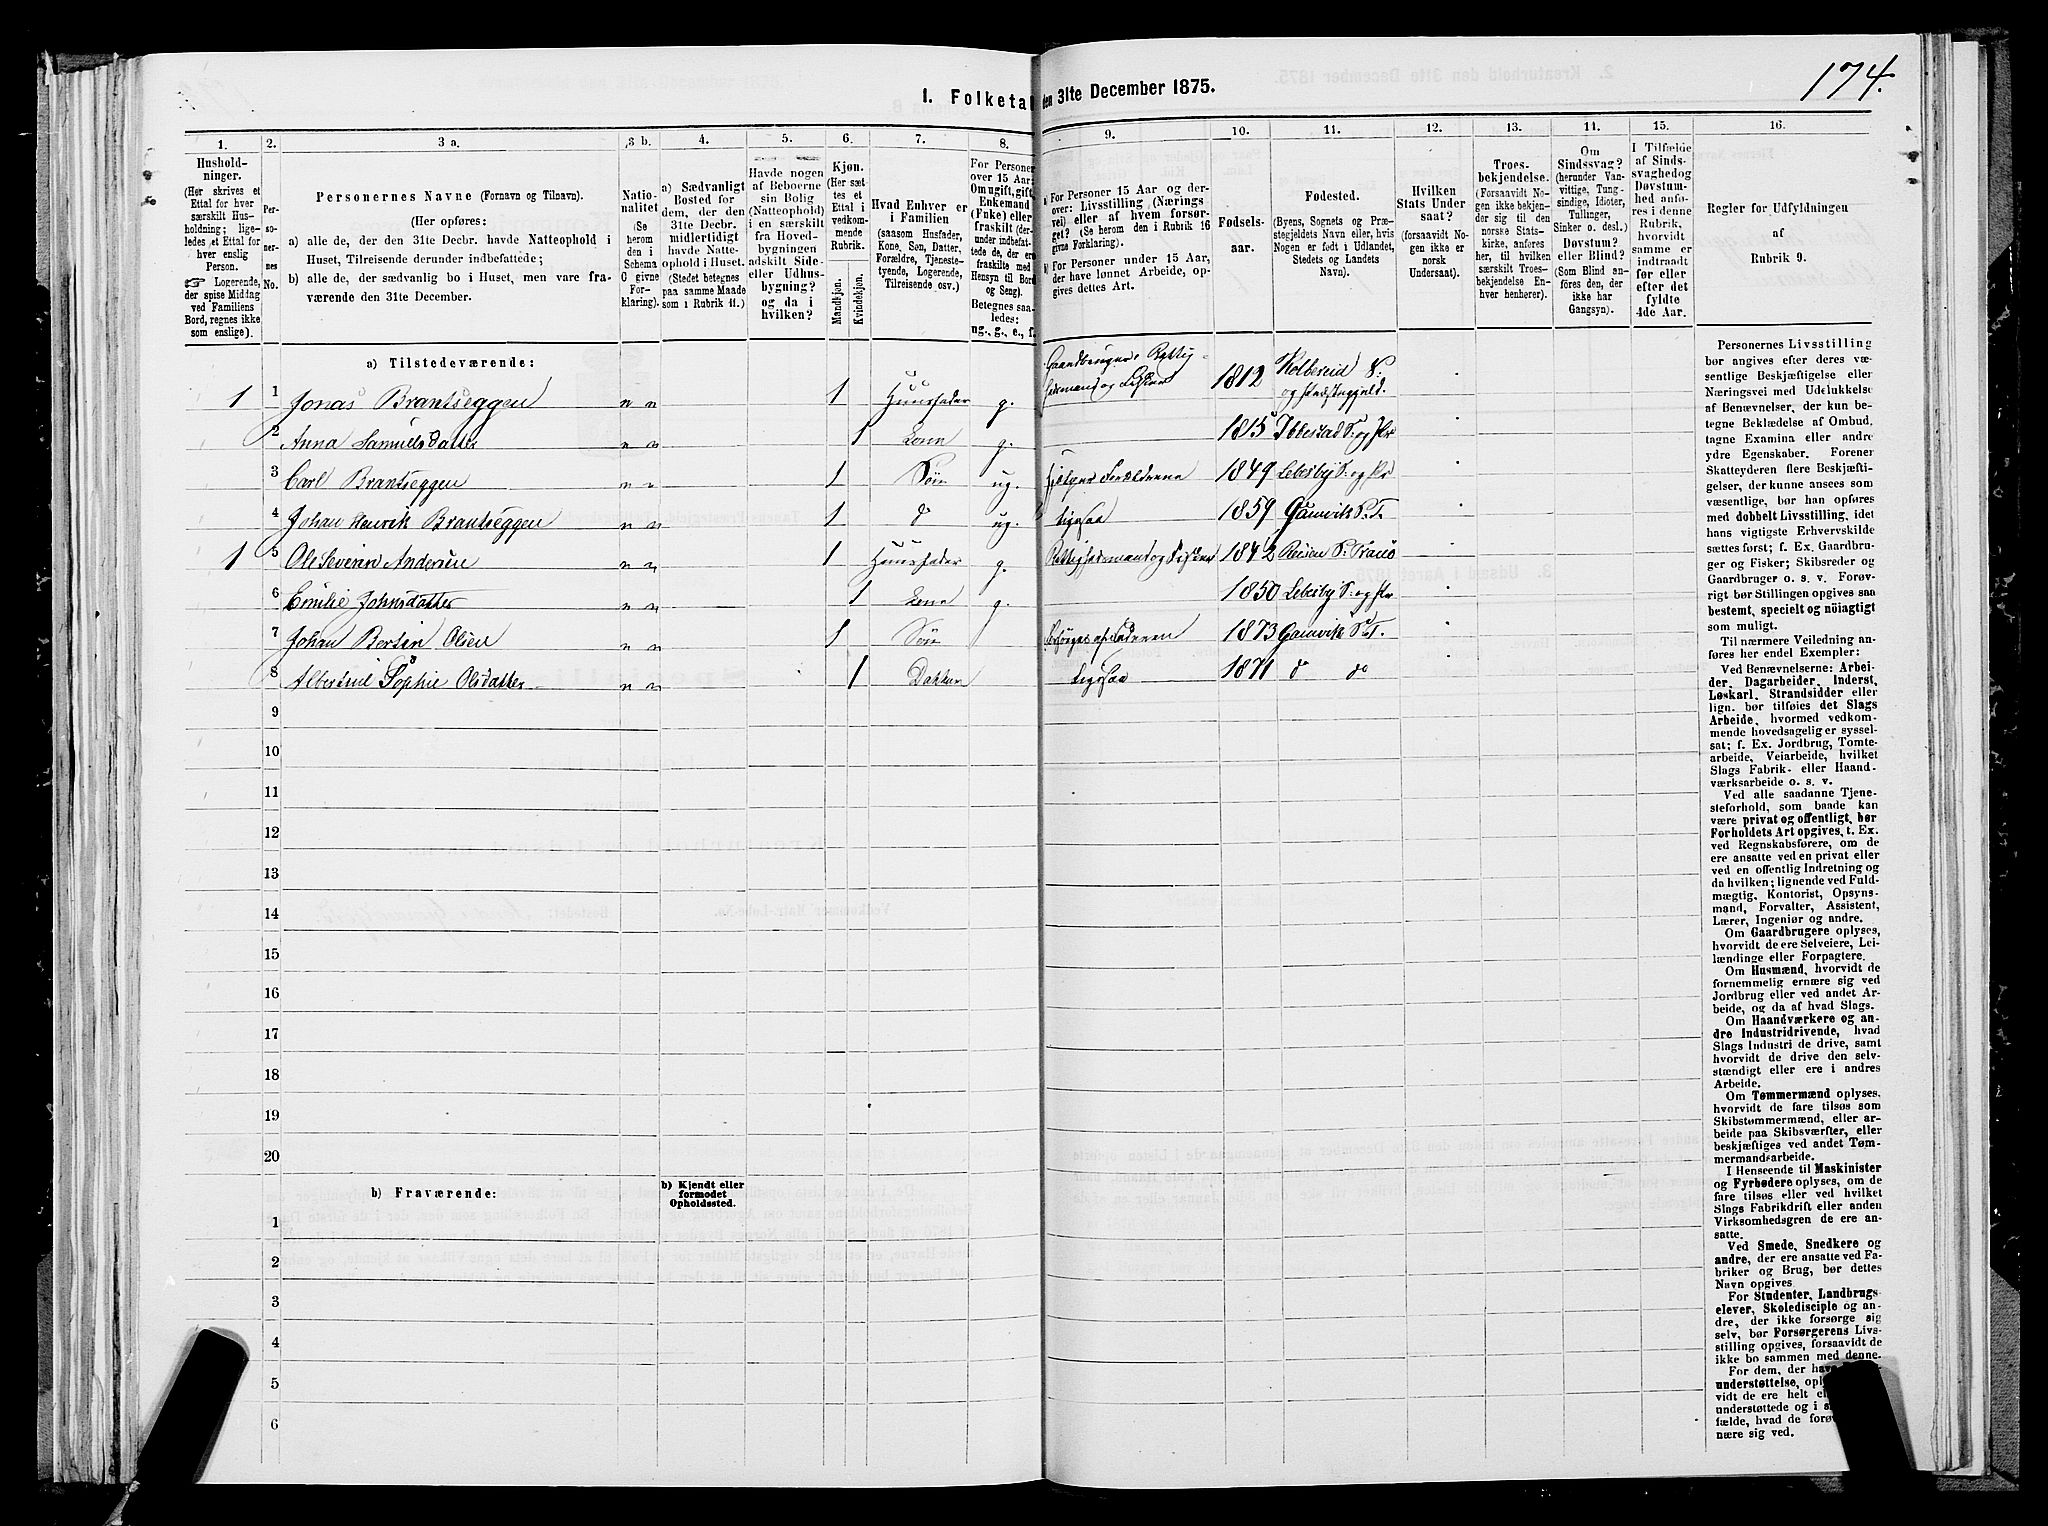 174.
1. Folketal den 31te December 1875.
1. 2. 3 a. 3 b. 4. 5. 6. 7. 8. 9. 10. 11. 12. 13. 14. 15. 16.
Hushold-
ninger.
(Her skrives et
Ettal for hver
særskilt Hus-
holdning; lige-
ledes et Ettal for
hver enslig
Person.
☞ Logerende,
der spise Middag
ved Familiens
Bord, regnes ikke
som enslige).
Per-
so-
ner-
nes
No.
Personernes Navne (Fornavn og Tilnavn).
(Her opføres:
a) alle de, der den 31te Decbr. havde Natteophold i
Huset, Tilreisende derunder indbefattede;
b) alle de, der sædvanlig bo i Huset, men vare fra-
værende den 31te December.
Natio-
nalitet
(Se
herom
den i
Schema
O givne
For-
klaring).
a) Sædvanligt
Bosted for
dem, der den
31te Decbr.
midlertidigt
havde Natte-
ophold i Huset.
(Stedet betegnes
paa samme Maade
som i Rubrik 11.)
Havde nogen
af Beboerne
sin Bolig
(Natteophold)
i en særskilt
fra Hoved-
bygningen
adskilt Side-
eller Udhus-
bygning?
og da i
hvilken?
Kjøn.
(Her sæt-
tes et
Ettal i
vedkom-
mende
Rubrik.
Mandkjøn.
Kvindekjøn.
Hvad Enhver er
i Familien
(saasom Husfader,
Kone, Søn, Datter,
Forældre, Tjeneste-
tyende, Logerende,
Tilreisende osv.)
For Personer
over 15 Aar:
Om ugift, gift,
Enkemand
(Enke) eller
fraskilt (der-
under indbefat-
tede de, der ere
fraskilte med
Hensyn til Bord
og Seng).
Betegnes saa-
ledes:
ug., g., e., f.
a) For Personer 15 Aar og der-
over: Livsstilling (Nærings-
vei) eller af hvem forsør-
get. (Se herom den i Rubrik 16
givne Forklaring).
b) For Personer under 15 Aar,
der have lønnet Arbeide, op-
gives dettes Art.
Fødsels-
aar.
Fødested.
(Byens, Sognets og Præ-
stegjeldets Navn eller, hvis
Nogen er født i Udlandet,
Stedets og Landets
Navn).
Hvilken
Stats Under
saat?
(forsaavidt No-
gen ikke er
norsk
Undersaat).
Troes-
bekjendelse.
(Forsaavidt No-
gen ikke bekjen-
der sig til den
norske Stats-
kirke, anføres
her, til hvilken
særskilt Troes-
bekjendelse En-
hver henhører).
Om
Sindssvag?
(herunder Van-
vittige, Tung-
sindige, Idioter,
Tullinger,
Sinker o. desl.)
Døvstum?
eller Blind?
(Som Blind an-
føres den, der
ikke har
Gangsyn).
I Tilfælde
af Sinds-
svaghed og
Døvstum-
hed anfø-
res i denne
Rubrik,
hvorvidt
samme er
indtraadt
før eller
efter det
fyldte
4de Aar.
Regler for Udfyldningen
af
Rubrik 9.
a) Tilstedeværende:
1 1 Jonas Brantseggen n n 1 Huusfader g. Gaardbruger, Rettig-
hedsmand og Fisker 1812
2 Anna Samuelsdatter n n 1 Kone g. 1815 Ibbestad S: og Pr
3 Carl Brantseggen n n 1 Søn ug. hjelper Forældrene 1849 Lebesby S: og Pr
4 Johan Henrik Brantseggen n n 1 do ug. ligesaa 1859 Gamvik S. T.
1 5 Ole Severin Andersen n n 1 Huusfader g. Rettighedsmand og Fisker 1842
6 Emilie Johnsdatter n n 1 Kone g. 1850 Lebesby S: og Pr
7 Johan Bertin Olsen n n 1 Søn Forsørges af Faderen 1873 Gamvik S. T.
8 Sophie Olsdatter n n 1 Datter ligesaa 1871 do do
9
10
11
12
13
14
15
16
17
18
19
20
b) Fraværende:
b) Kjendt eller
formodet
Opholdssted.
1
2
3
4
5
6
Personernes Livsstilling
bør angives efter deres væ-
sentlige Beskjæftigelse eller
Næringsvei med Udelukkelse
af Benævnelser, der kun be-
tegne Beklædelse af Ombud,
tagne Examina eller andre
ydre Egenskaber. Forener
Skatteyderen flere Beskjæfti-
gelser, der kunne ansees som
væsentlige, bør han opføres
med dobbelt Livsstilling, idet
hans vigtigste Erhvervskilde
sættes først; f. Ex. Gaardbru-
ger og Fisker; Skibsreder og
Gaardbruger o. s. v. Forøv-
rigt bør Stillingen opgives saa
bestemt, specielt og nöiagtigt
som muligt.
Til nærmere Veiledning an-
føres her endel Exempler:
Ved Benævnelserne: Arbei-
der, Dagarbeider, Inderst,
Løskarl, Strandsidder eller
lign. bør tilføies det Slags
Arbeide, hvormed vedkom-
mende hovedsagelig er syssel-
sat; f. Ex. Jordbrug, Tomte-
arbeide, Veiarbeide, hvilket
Slags Fabrik- eller Haand-
værksarbeide o. s. v.
Ved alle saadanne Tjene-
steforhold, som baade kan
være privat og offentligt, bør
Forholdets Art opgives, t. Ex.
ved Regnskabsførere, om de
ere ansatte ved en privat eller
ved en offentlig Indretning og
da hvilken; lignende ved Fuld-
mægtig, Kontorist, Opsyns-
mand, Forvalter, Assistent,
Lærer, Ingeniør og andre.
Om Gaardbrugere oplyses,
hvorvidt de ere Selveiere, Lei-
lændinge eller Forpagtere.
Om Husmænd, hvorvidt de
fornemmelig ernære sig ved
Jordbrug eller ved andet Ar-
beide, og da af hvad Slags.
Om Haandværkere og an-
dre Industridrivende, hvad
Slags Industri de drive, samt
hvorvidt de drive den selv-
stændigt eller ere i andres
Arbeide.
Om Tømmermænd oplyses,
hvorvidt de fare tilsøs som
Skibstømmermænd, eller ar-
beide paa Skibsværfter, eller
beskjæftiges ved andet Tøm-
mermandsarbeide.
I Henseende til Maskinister
og Fyrbødere oplyses, om de
fare tilsøs eller ved hvilket
Slags Fabrikdrift eller anden
Virksomhedsgren de ere an-
satte.
Ved Smede, Snedkere og
andre, der ere ansatte ved Fa-
briker og Brug, bør dettes
Navn opgives.
For Studenter, Landbrugs-
elever, Skoledisciple og an-
dre, der ikke forsørge sig
selv, bør Forsørgerens Livs-
stilling opgives, forsaavidt de
ikke bo sammen med denne.
For dem, der have
understøttelse,
vidt de ere helt
understøttede og i
fælde, hvad de
nære sig ved.